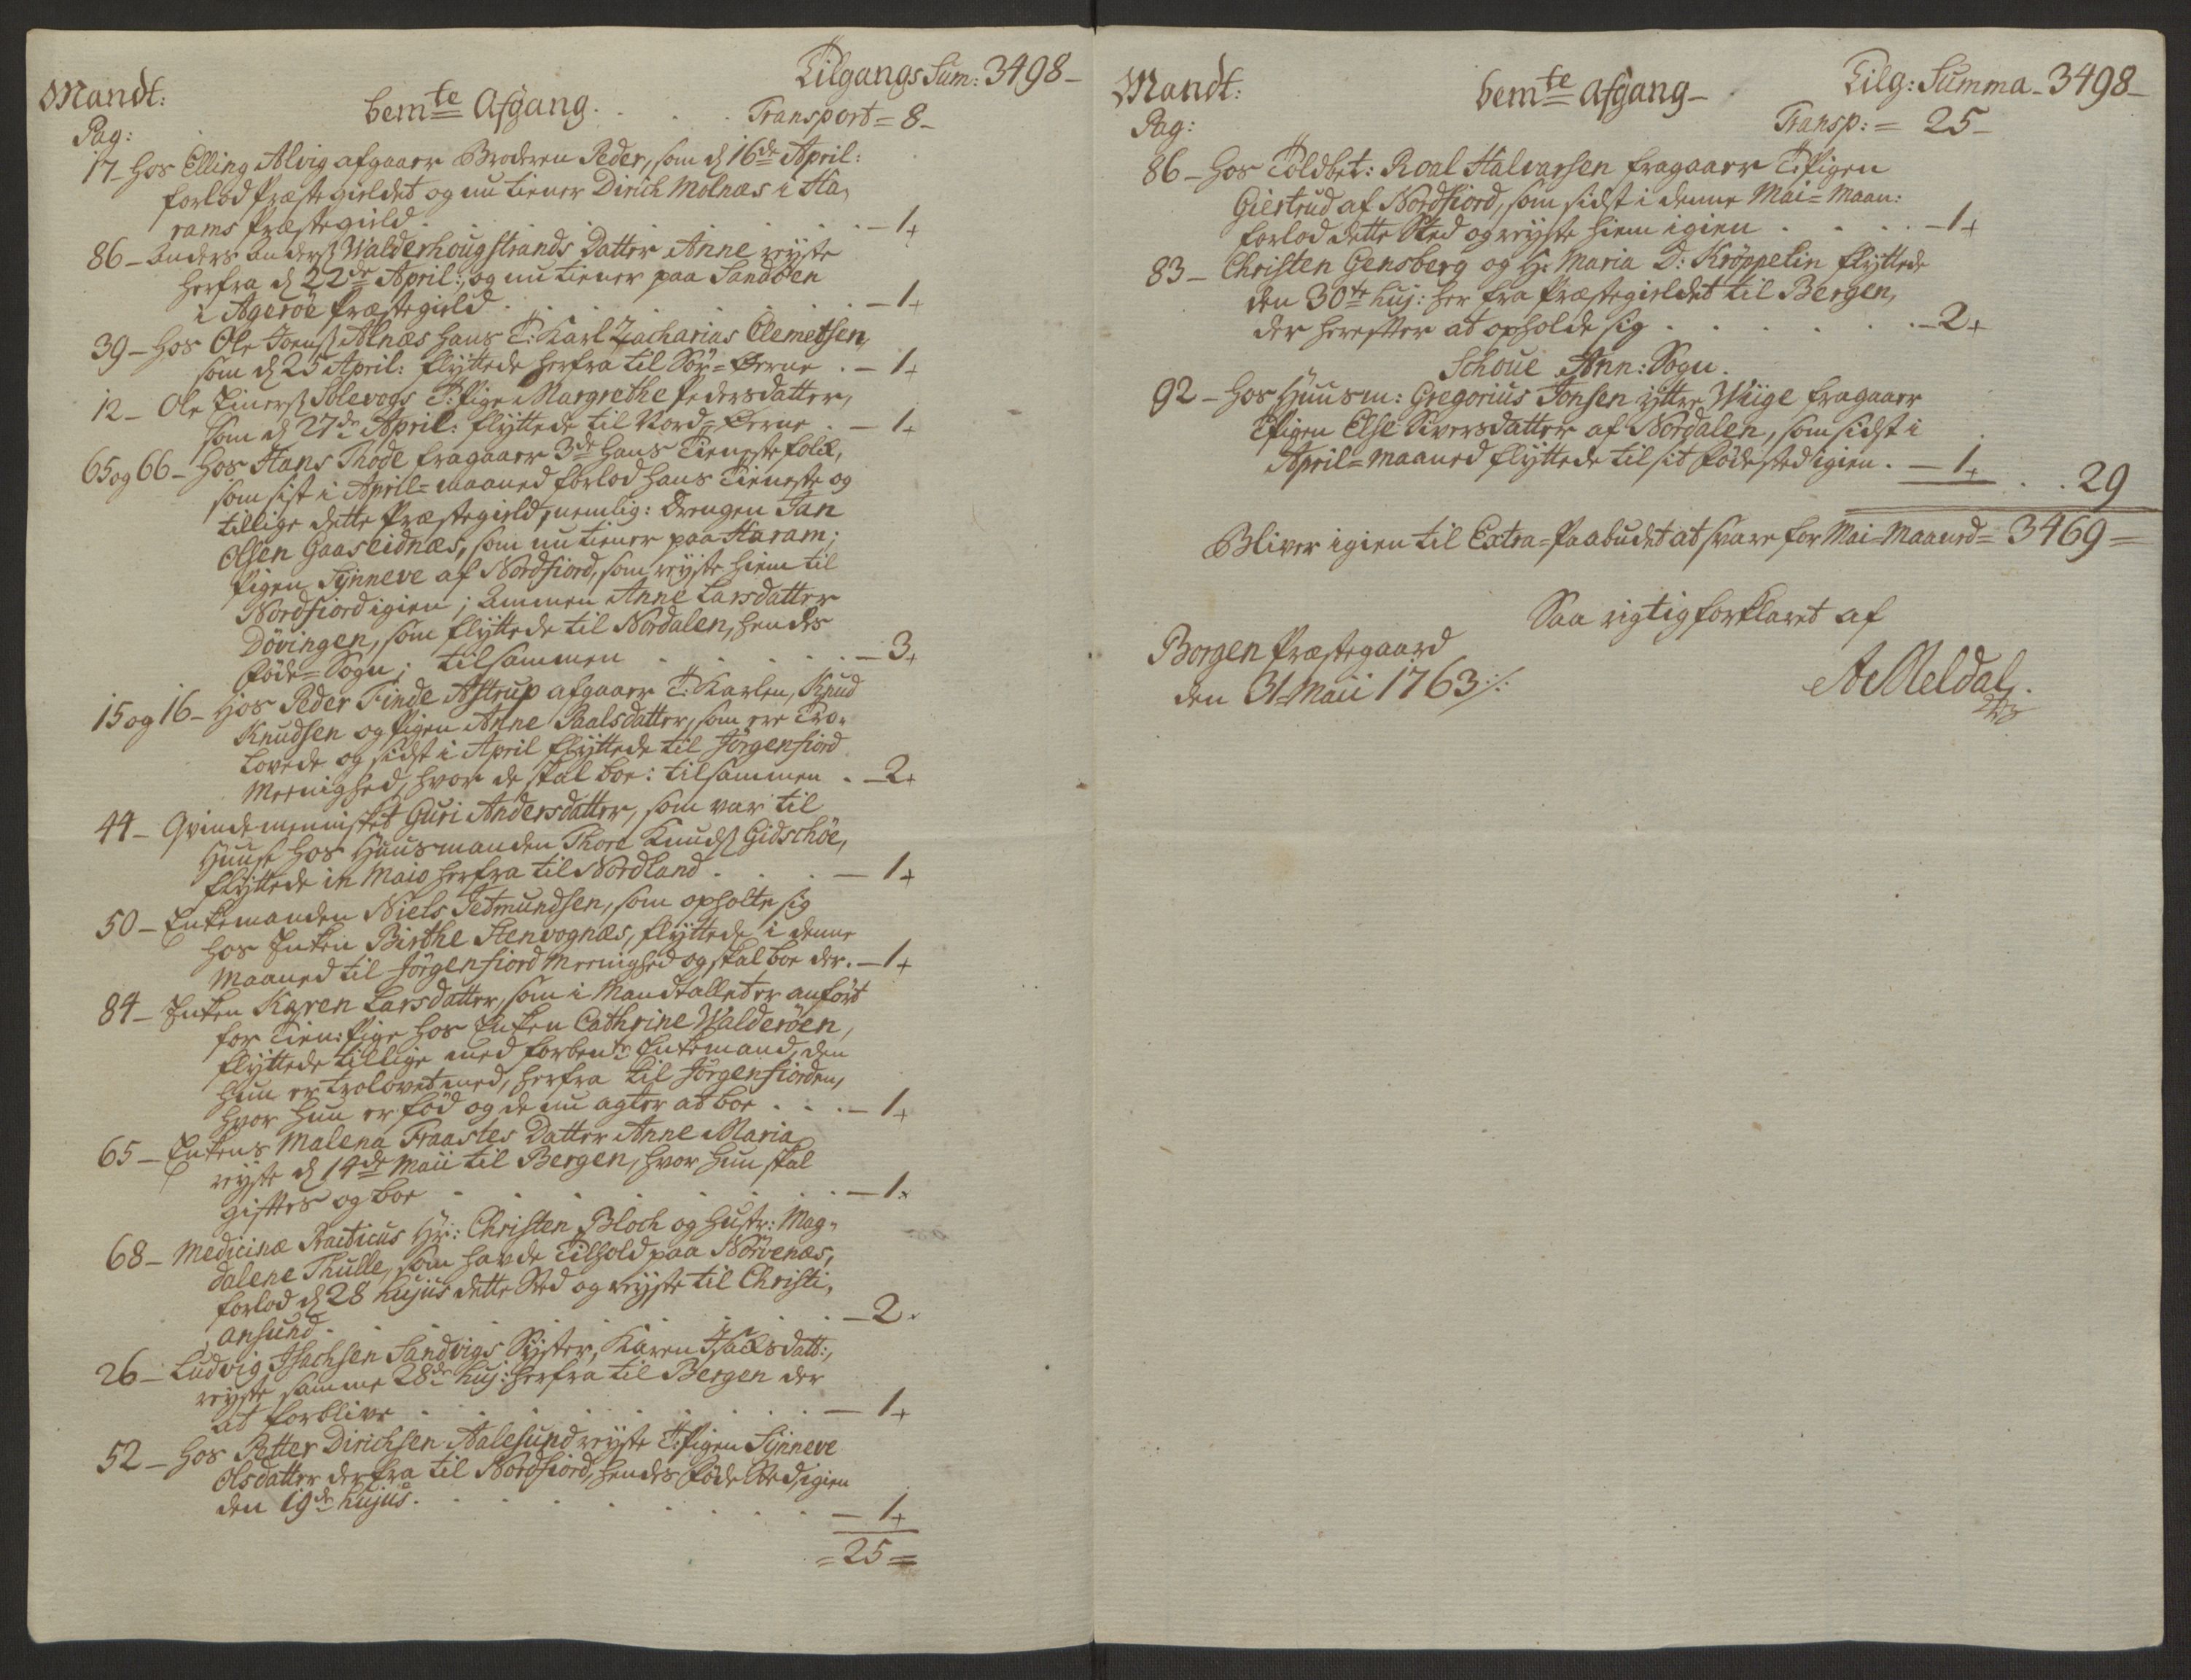 Tilgangs Sum: 3498-
Mandt:
bemte Afgang. . . . Transport = 8-
Pag:
17- Hos Elling Alvig afgaaer Broderen Peder, som d 16de April:
forlod Præstegieldet og nu tiener Dirich Molnæs i Ha,
rams Præstegield . . . . . . . - 1+
86- Anders Anders Walderhougstrands Datter Anne reyste
herfra d 22de April:, og nu tiener paa Sandøen
i Agerøe Præstegield . . . . . . - 1+
39- Hos Ole Joens Alnæs hans T: Karl Zacharias Clemetsen,
som d 25 April: flyttede herfra til Sør=Øerne . - 1+
12- Ole Einers Solevogs T: Pige Margrethe Pedersdatter,
som d 27de April: flyttede til Nord=Øerne . - 1+
65 og 66- Hos Hans Thode fragaaer 3de hans Tienestefolk,
som sist i April=maaned forlod hans Tieneste og
tillige dette Præstegield, nemlig: Drengen Jan
Olsen Gaaseidnæs, som nu tiener paa Haram;
Pigen Synneve af Nordfiord, som reyste hiem til
Nordfiord igien; Ammen Anne Larsdatter
Døvingen, som flyttede til Nordalen, hendes
Føde=Sogn; tilsammen . . . . . - 3+
15 og 16- Hos Peder Finde Astrup afgaaer T: Karlen, Knud
Knudsen og Pigen Anne Paalsdatter, som ere Tro,
lovede og sidst i April flyttede til Jørgenfiord
Meenighed, hvor de skal boe: tilsammen . - 2+
44- Qvindemennisket Guri Andersdatter, som var til
Huuse hos Huusmanden Thore Knuds Gidschøe,
flyttede in Maio herfra til Nordland . . . - 1+
50- Enkemanden Niels Jetmundsen, som opholte sig
hos Enken Birthe Stenvognæs, flyttede i denne
Maaned til Jørgenfiord Meenighed og skal boe der. - 1+
84- Enken Karen Larsdatter, som i Mandtallet er anført
for Tien: Pige hos Enken Cathrine Walderøen,
flyttede tillige med forbente Enkemand, den
hun er trolovet med, herfra til Jørgenfiorden,
hvor hun er fød og de nu agter at boe . . . - 1+
65- Enkens Malena Fraastes Datter Anne Maria
reyste d 14de Maii til Bergen, hvor hun skal
giftes og boe . . . . . . . - 1+
68- Medicinæ Practicus Hr: Christen Bloch og Hustr: Mag,
dalene Thulle, som havde Tilhold paa Nørvenæs,
forlod d 28 hujus dette Sted og reyste til Christi,
ansund . . . . . . . . - 2+
26- Ludvig Isachsen Sandvigs Syster, Karen Isaksdatt:,
reyste samme 28de huj: herfra til Bergen der
at forblive . . . . . . . - 1+
52- Hos Petter Dirichsen Aalesund reyste T: Pigen Synneve
Olsdatter derfra til Nordfiord, hendes Føde Sted, igien
den 19de hujus . . . . . . . - 1+
= 25 =
Mandt:
bemte Afgang- Tilg: Summa- 3498-
Pag:
Transp: = 25-
86- Hos Toldbet: Roal Halvarsen fragaaer T: Pigen
Giertrud af Nordfiord, som sidst i denne Mai=Maan:
forlod dette Sted og reyste hiem igien . . . . - 1+
83- Christen Gensberg og H: Maria D: Krøppelin flyttede
den 30te huj: her fra Præstegieldet til Bergen,
der herefter at opholde sig . . . . . . - 2+
Schoue Ann: Sogn.
92- Hos Huusm: Gregorius Jonsen yttre Wiige fragaaer
T: Pigen Else Siversdatter af Nordalen, som sidst i
April=maaned flyttede til sit Fødested igien. - 1+ . . 29
Bliver igien til Extra=Paabudet at svare for Mai-Maaned = 3469 =
Saa rigtig forklaret af
Borgen Præstegaard
den 31 Maii 1763 ./.
A Meldal.